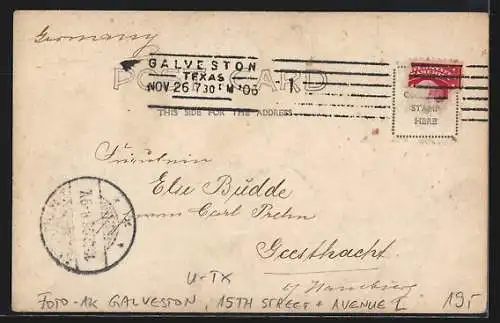 Germany
GALVESTON
TEXAS
NOV 26 730 PM '06
1
POST CARD
THIS SIDE FOR THE ADDRESS
STAMP
HERE
Fräulein
Else Budde
Carl Prehn
Geesthacht
b/ Hamburg
U-TX
FOTO-AK GALVESTON, 15TH STREET + AVENUE L
19,-